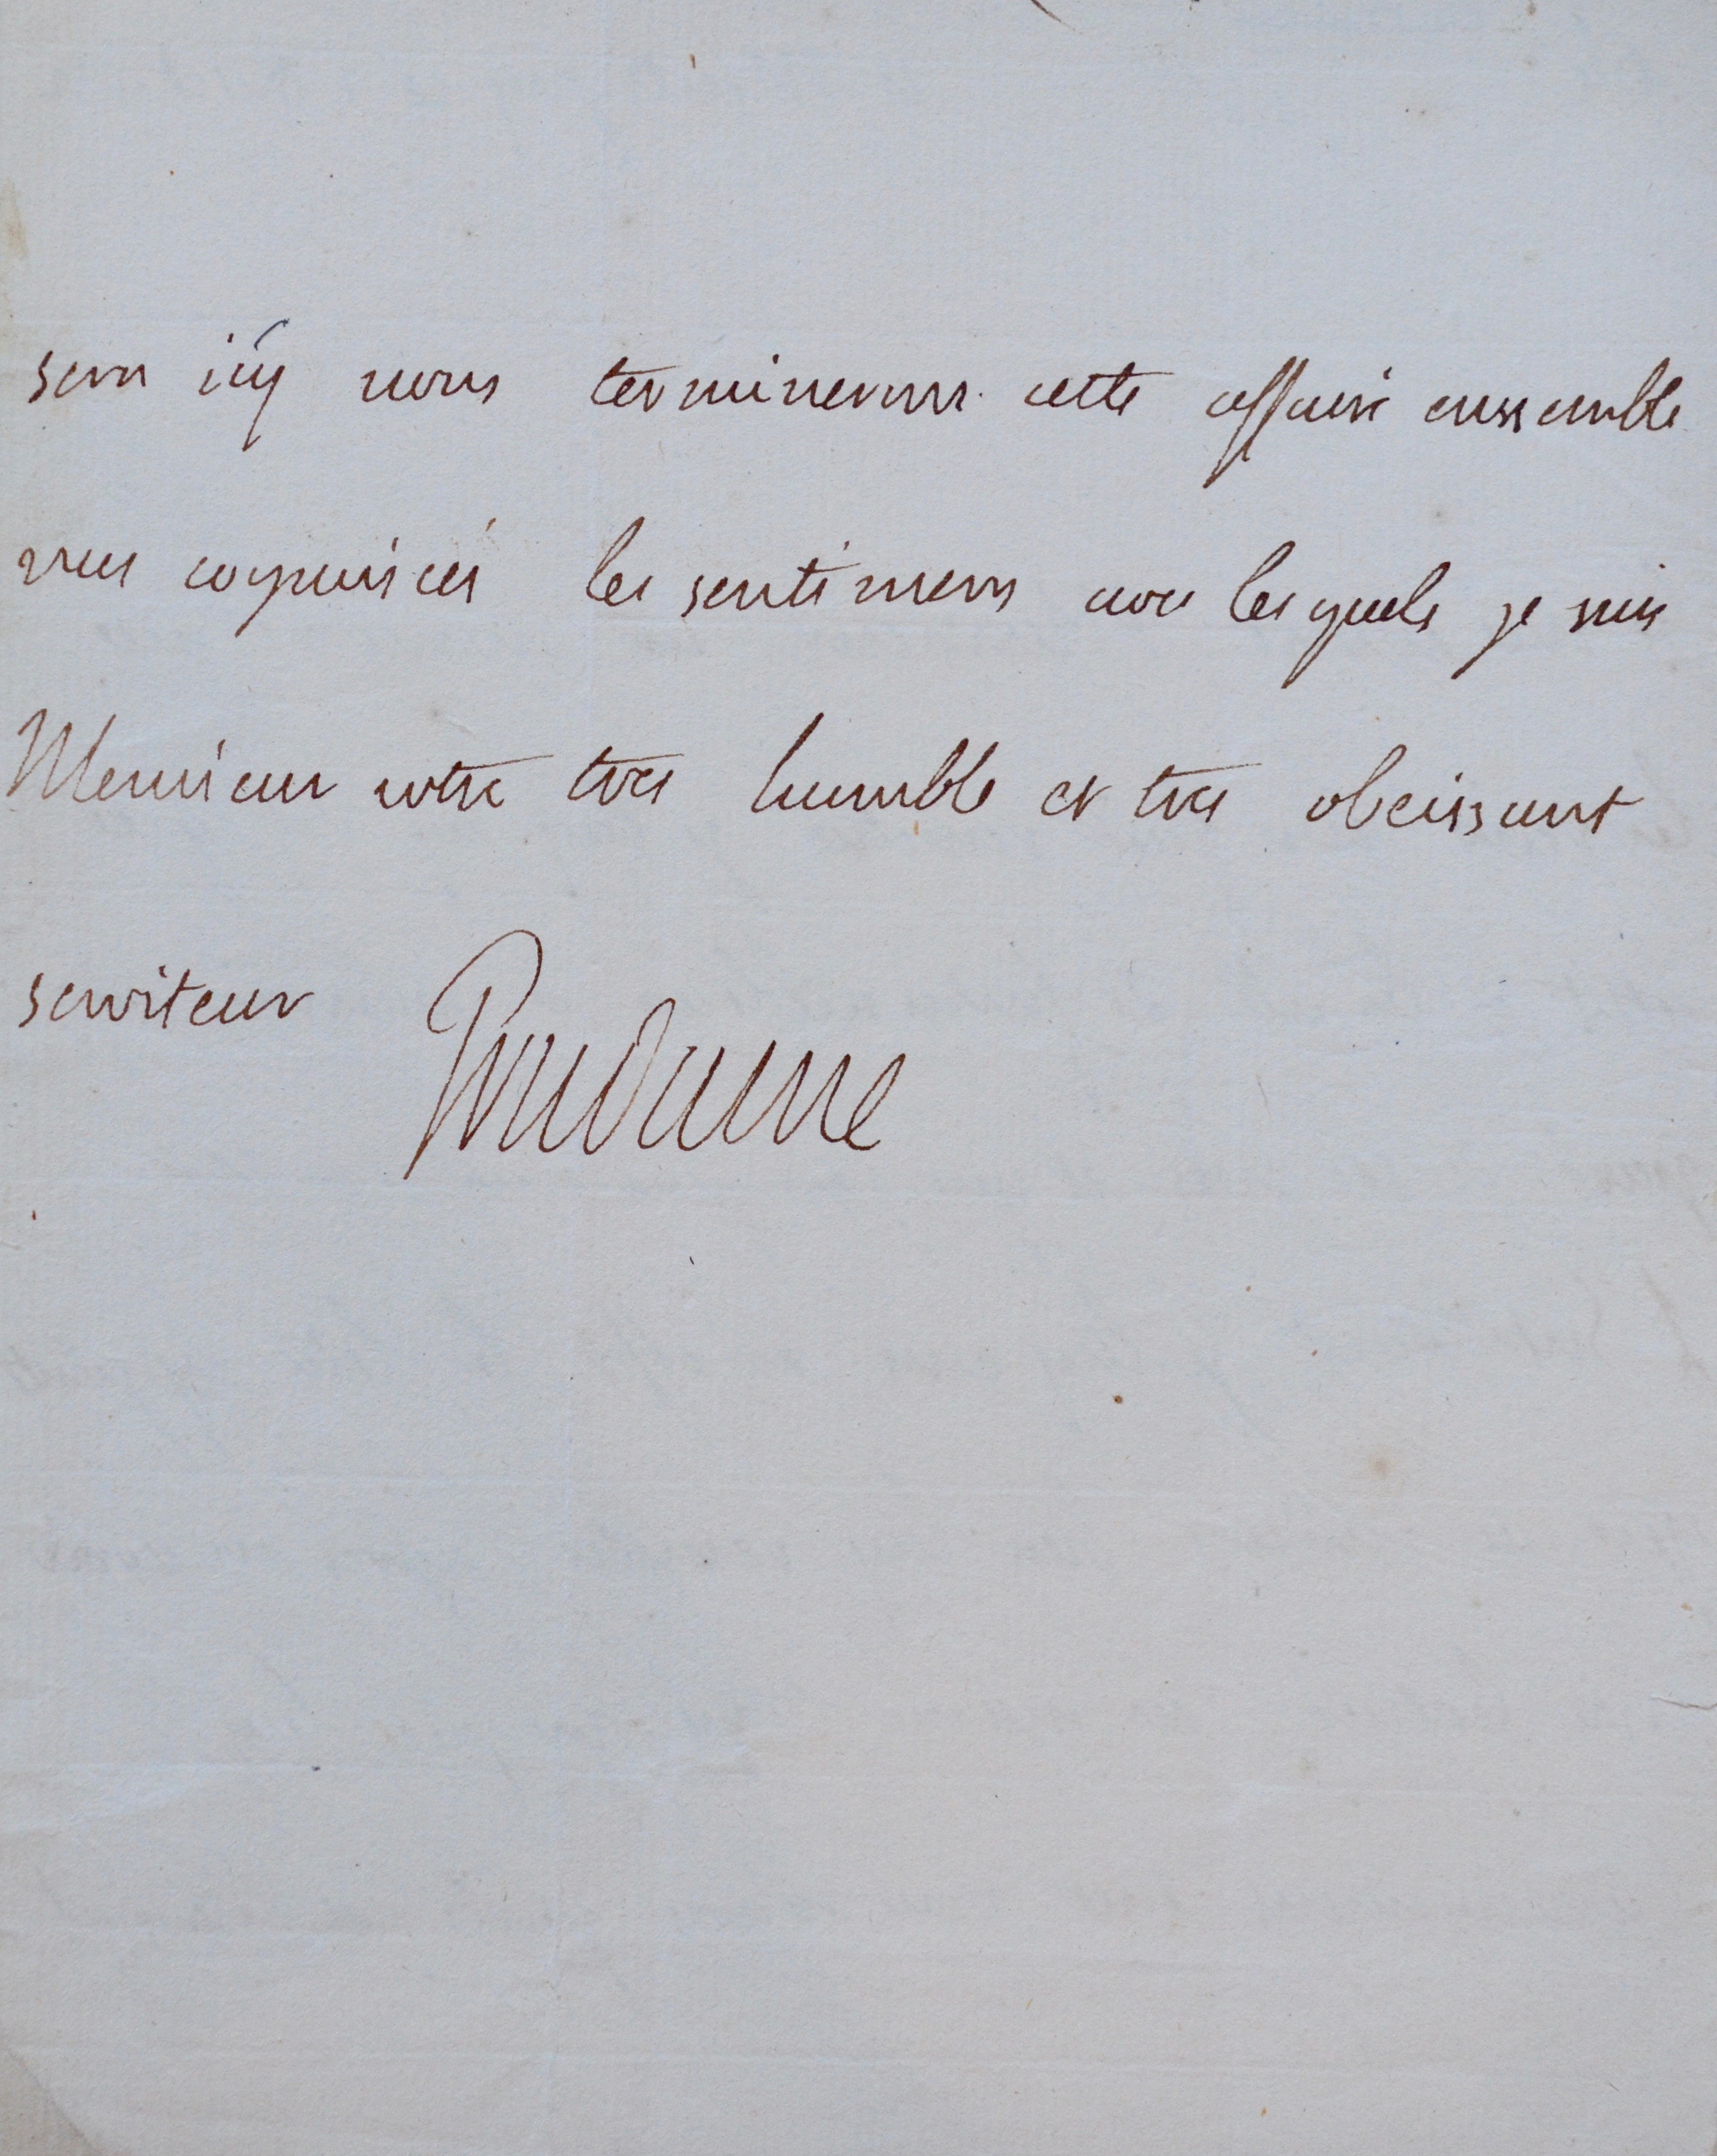 sera icy nous terminerons cette affaire enssemble
vous cognoisces les sentimens avec les quels je suis
Monsieur votre tres humble et tres obeissant
serviteur